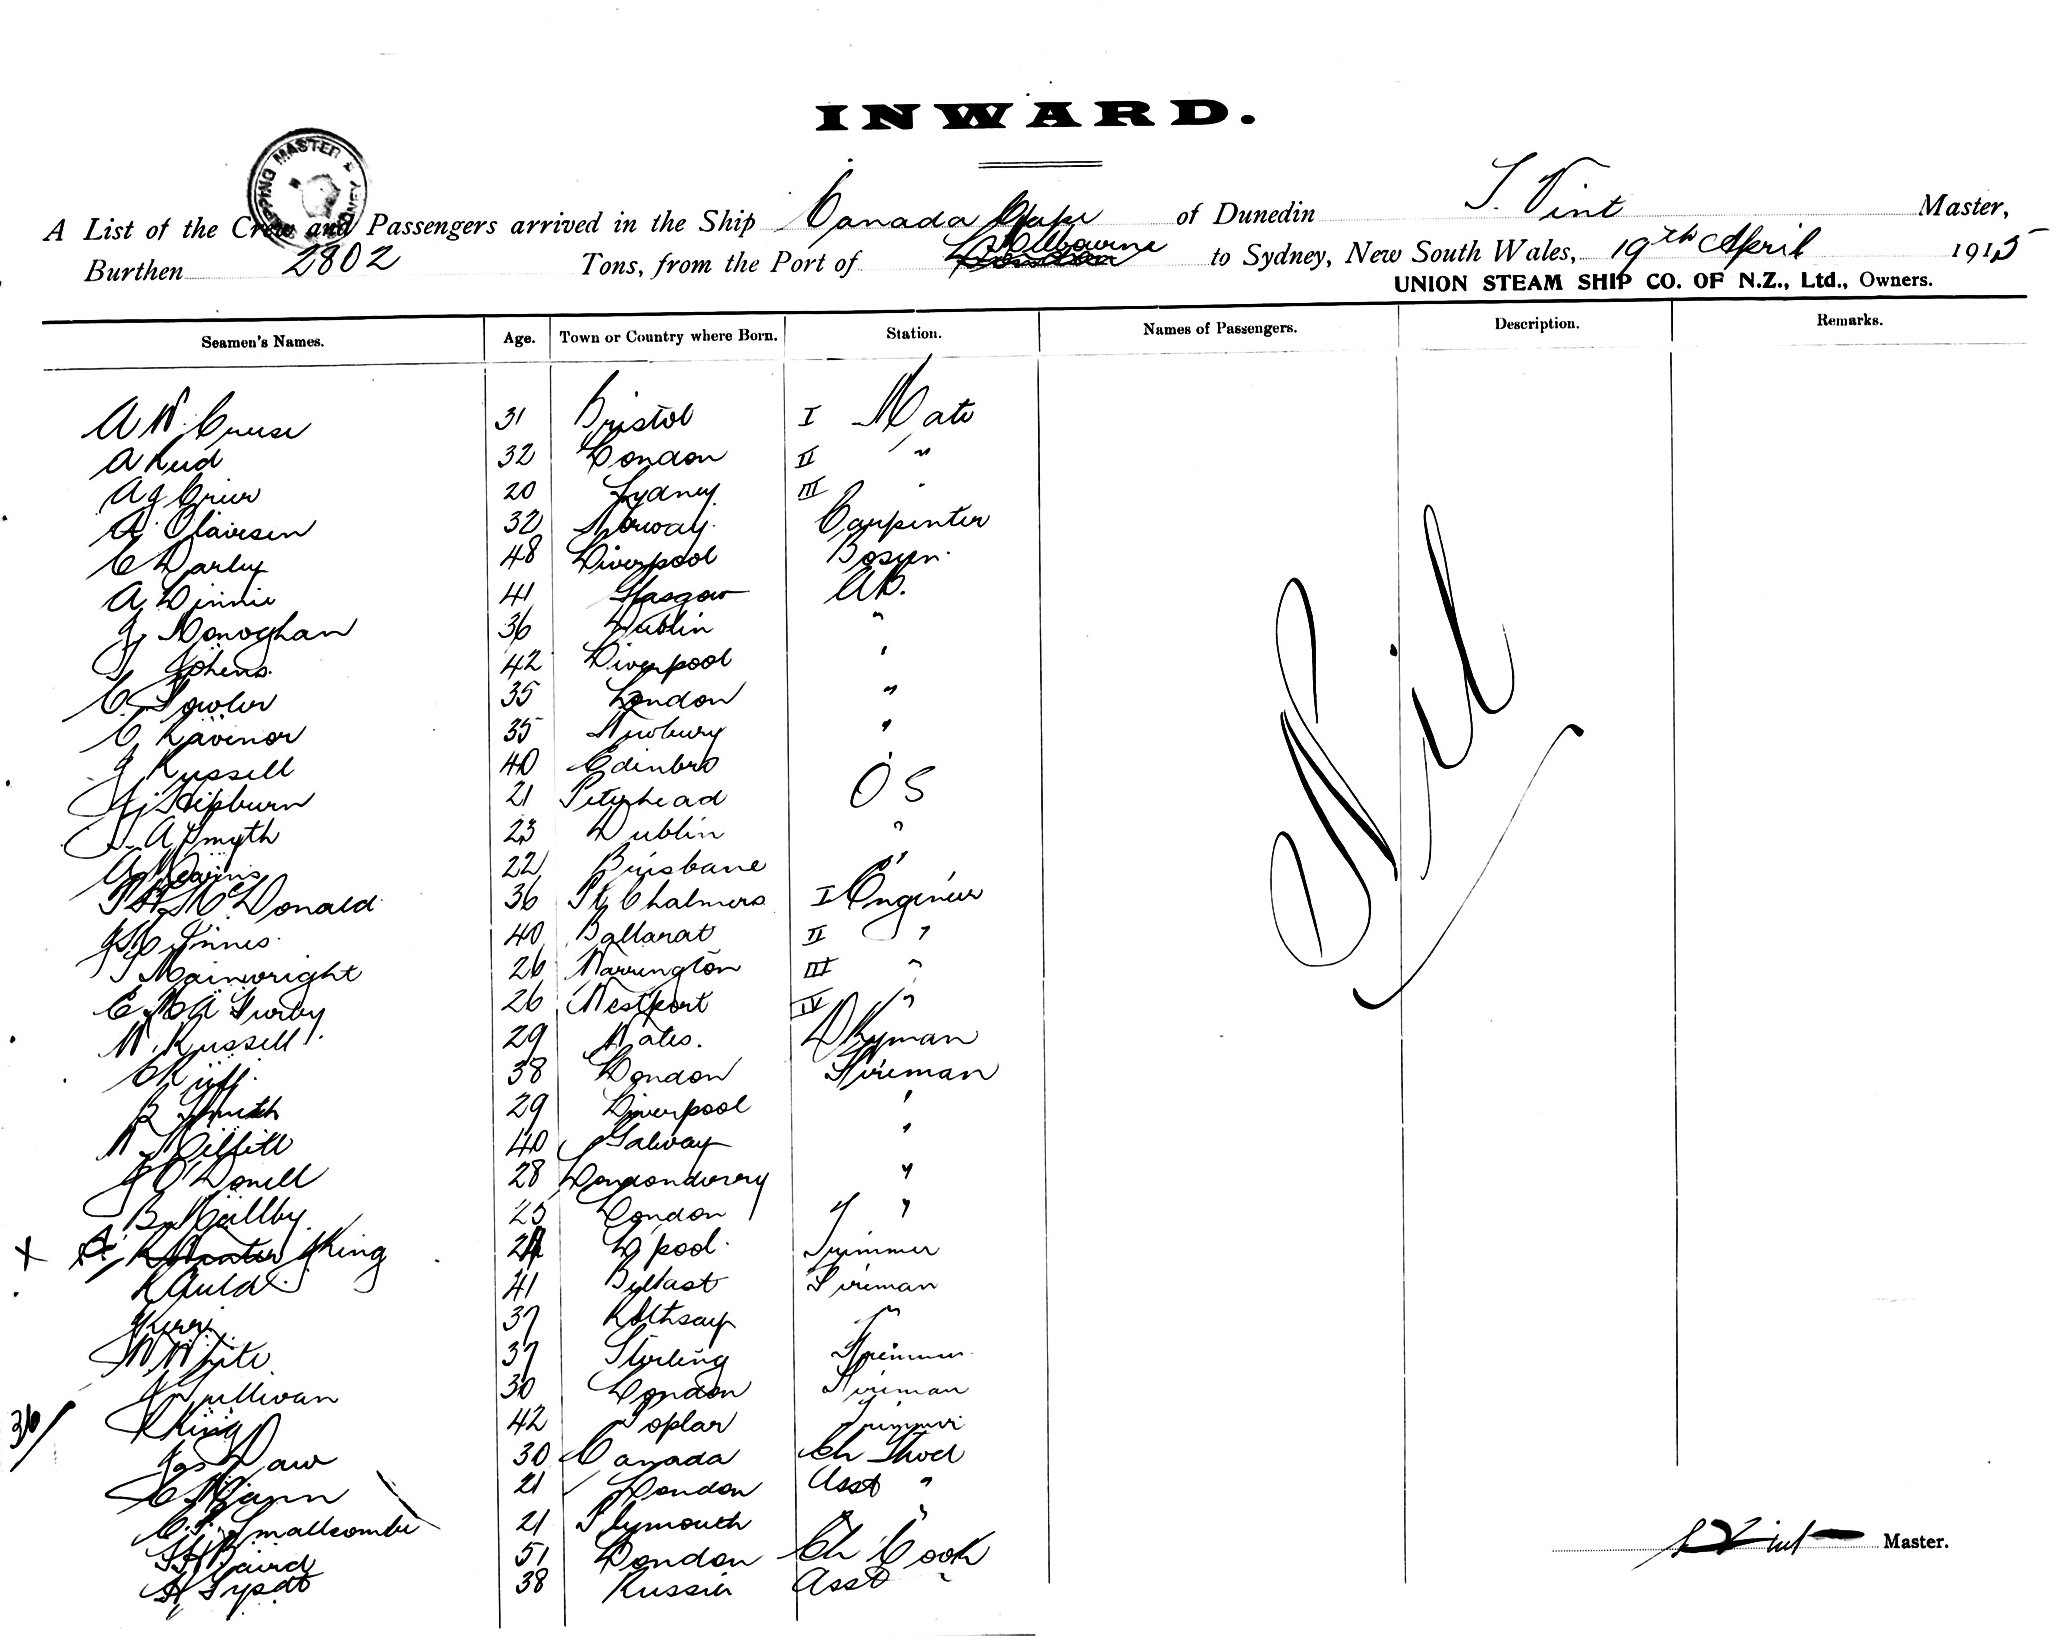 INWARD.
SHIPPING MASTER SYDNEY
A List of the Crew and Passengers arrived in the Ship Canada Cape of Dunedin T. Vint Master,
Burthen 2802 Tons, from the Port of Melbourne to Sydney, New South Wales, 19th April 1915
UNION STEAM SHIP CO. OF N.Z., Ltd., Owners.
Seamen's Names. Age. Town or Country where Born. Station. Names of Passengers. Description. Remarks.
A W Cruse 31 Bristol I Mate
A Reid 32 London II "
A J Crier 20 Sydney III "
A. Olavesen 32 Norway. Carpenter
C Darby 48 Liverpool Bosun.
A Dinnie 41 Glasgow AB.
J Monoghan 36 Dublin "
42 Liverpool "
C. Fowler 35 London "
C Ravenor 35 Newbury "
J Russell 40 Edinbro "
J Hepburn 21 Peterhead O S
A Smyth 23 Dublin "
A Mearins 22 Brisbane "
McDonald 36 Pt Chalmers I Engineer
Innes. 40 Ballarat II "
T Mainwright 26 Warrington III "
Furby 26 Westport IV "
W. Russell 29 Wales. Dkyman
C Ruff. 38 London Fireman
B Smith 29 Liverpool "
40 Galway "
J O'Donell 28 Londonderry "
B Maillby 25 London " "
X A. King 24 L'pool. Trimmer
R Auld 41 Belfast Fireman
J Kerr 37 Rothsay "
W White 37 Sterling Trimmer
J Sullivan 30 London Fireman
36/ R King 42 Poplar Trimmer
Jas Daw 30 Canada Ch Stwd
C Mann 21 London Asst "
C. F. Smallcombe 21 Plymouth "
Baird 51 London Ch Cook
38 Russia Asst "
Nil
T Vint Master.